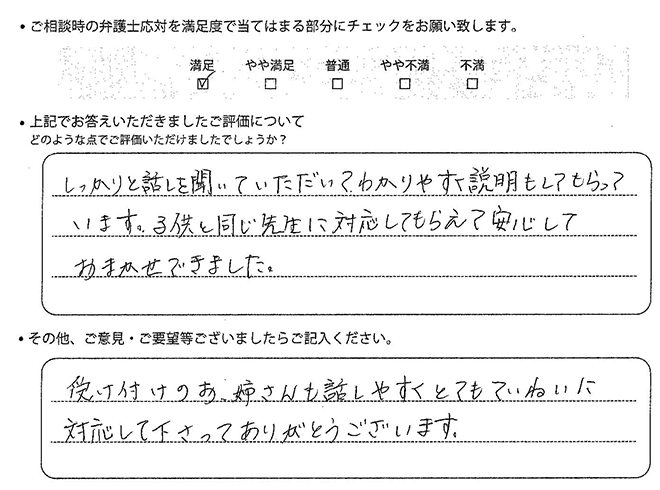 ・ご相談時の弁護士応対を満足度で当てはまる部分にチェックをお願い致します。
満足 やや満足 普通 やや不満 不満
☑ □ □ □ □
・上記でお答えいただきましたご評価について
どのような点でご評価いただけましたでしょうか？
しっかりと話しを聞いていただいてわかりやすく説明もしてもらって
います。子供と同じ先生に対応してもらえて安心して
おまかせできました。
・その他、ご意見・ご要望等ございましたらご記入ください。
受け付けのお、姉さんも話しやすくとてもていねいに
対応して下さってありがとうございます。